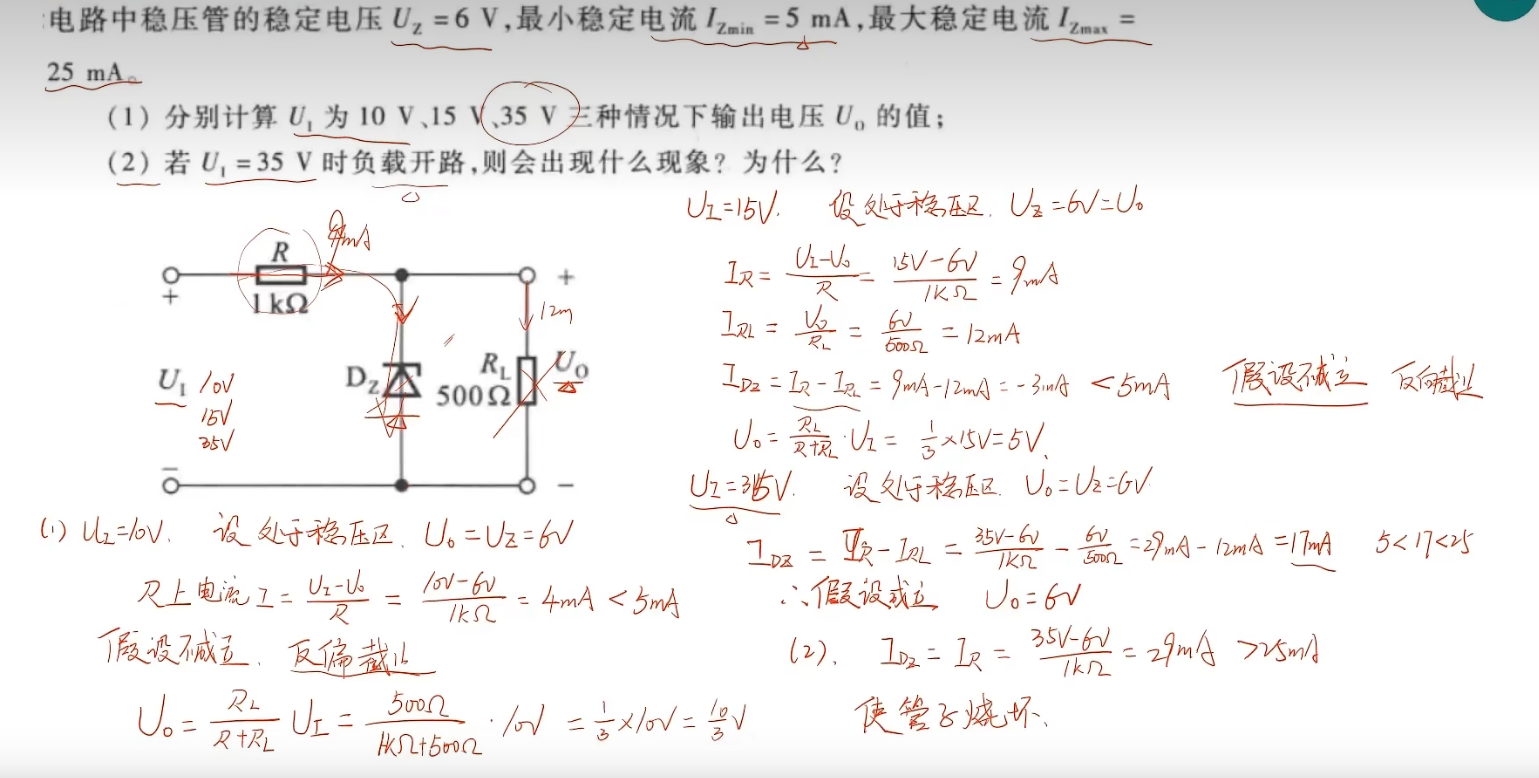 电路中稳压管的稳定电压 U_Z = 6 V,最小稳定电流 I_Zmin = 5 mA,最大稳定电流 I_Zmax =
25 mA。
(1) 分别计算 U_I 为 10 V、15 V、35 V 三种情况下输出电压 U_o 的值;
(2) 若 U_I = 35 V 时负载开路,则会出现什么现象? 为什么?
R
1 kΩ
+
U_I
10V
15V
35V
−
D_Z
R_L
500Ω
12m
+
U_O
−
(1) U_I=10V. 设处于稳压区. U_o=U_Z=6V
R上电流 I = (U_I-U_o)/R = (10V-6V)/1kΩ = 4mA < 5mA
假设不成立. 反偏截止
U_o = R_L/(R+R_L) U_I = 500Ω/(1kΩ+500Ω) · 10V = 1/3 × 10V = 10/3 V
U_I=15V. 设处于稳压区. U_Z=6V=U_o
I_R = (U_I-U_o)/R = (15V-6V)/1kΩ = 9mA
I_RL = U_o/R_L = 6V/500Ω = 12mA
I_DZ = I_R - I_RL = 9mA-12mA = -3mA < 5mA 假设不成立 反向截止
U_o = R_L/(R+R_L) · U_I = 1/3 × 15V = 5V.
U_I=35V. 设处于稳压区. U_o=U_Z=6V
I_DZ = I_R - I_RL = (35V-6V)/1kΩ - 6V/500Ω = 29mA - 12mA = 17mA 5<17<25
∴假设成立 U_o=6V
(2). I_DZ = I_R = (35V-6V)/1kΩ = 29mA >25mA
使管子烧坏.